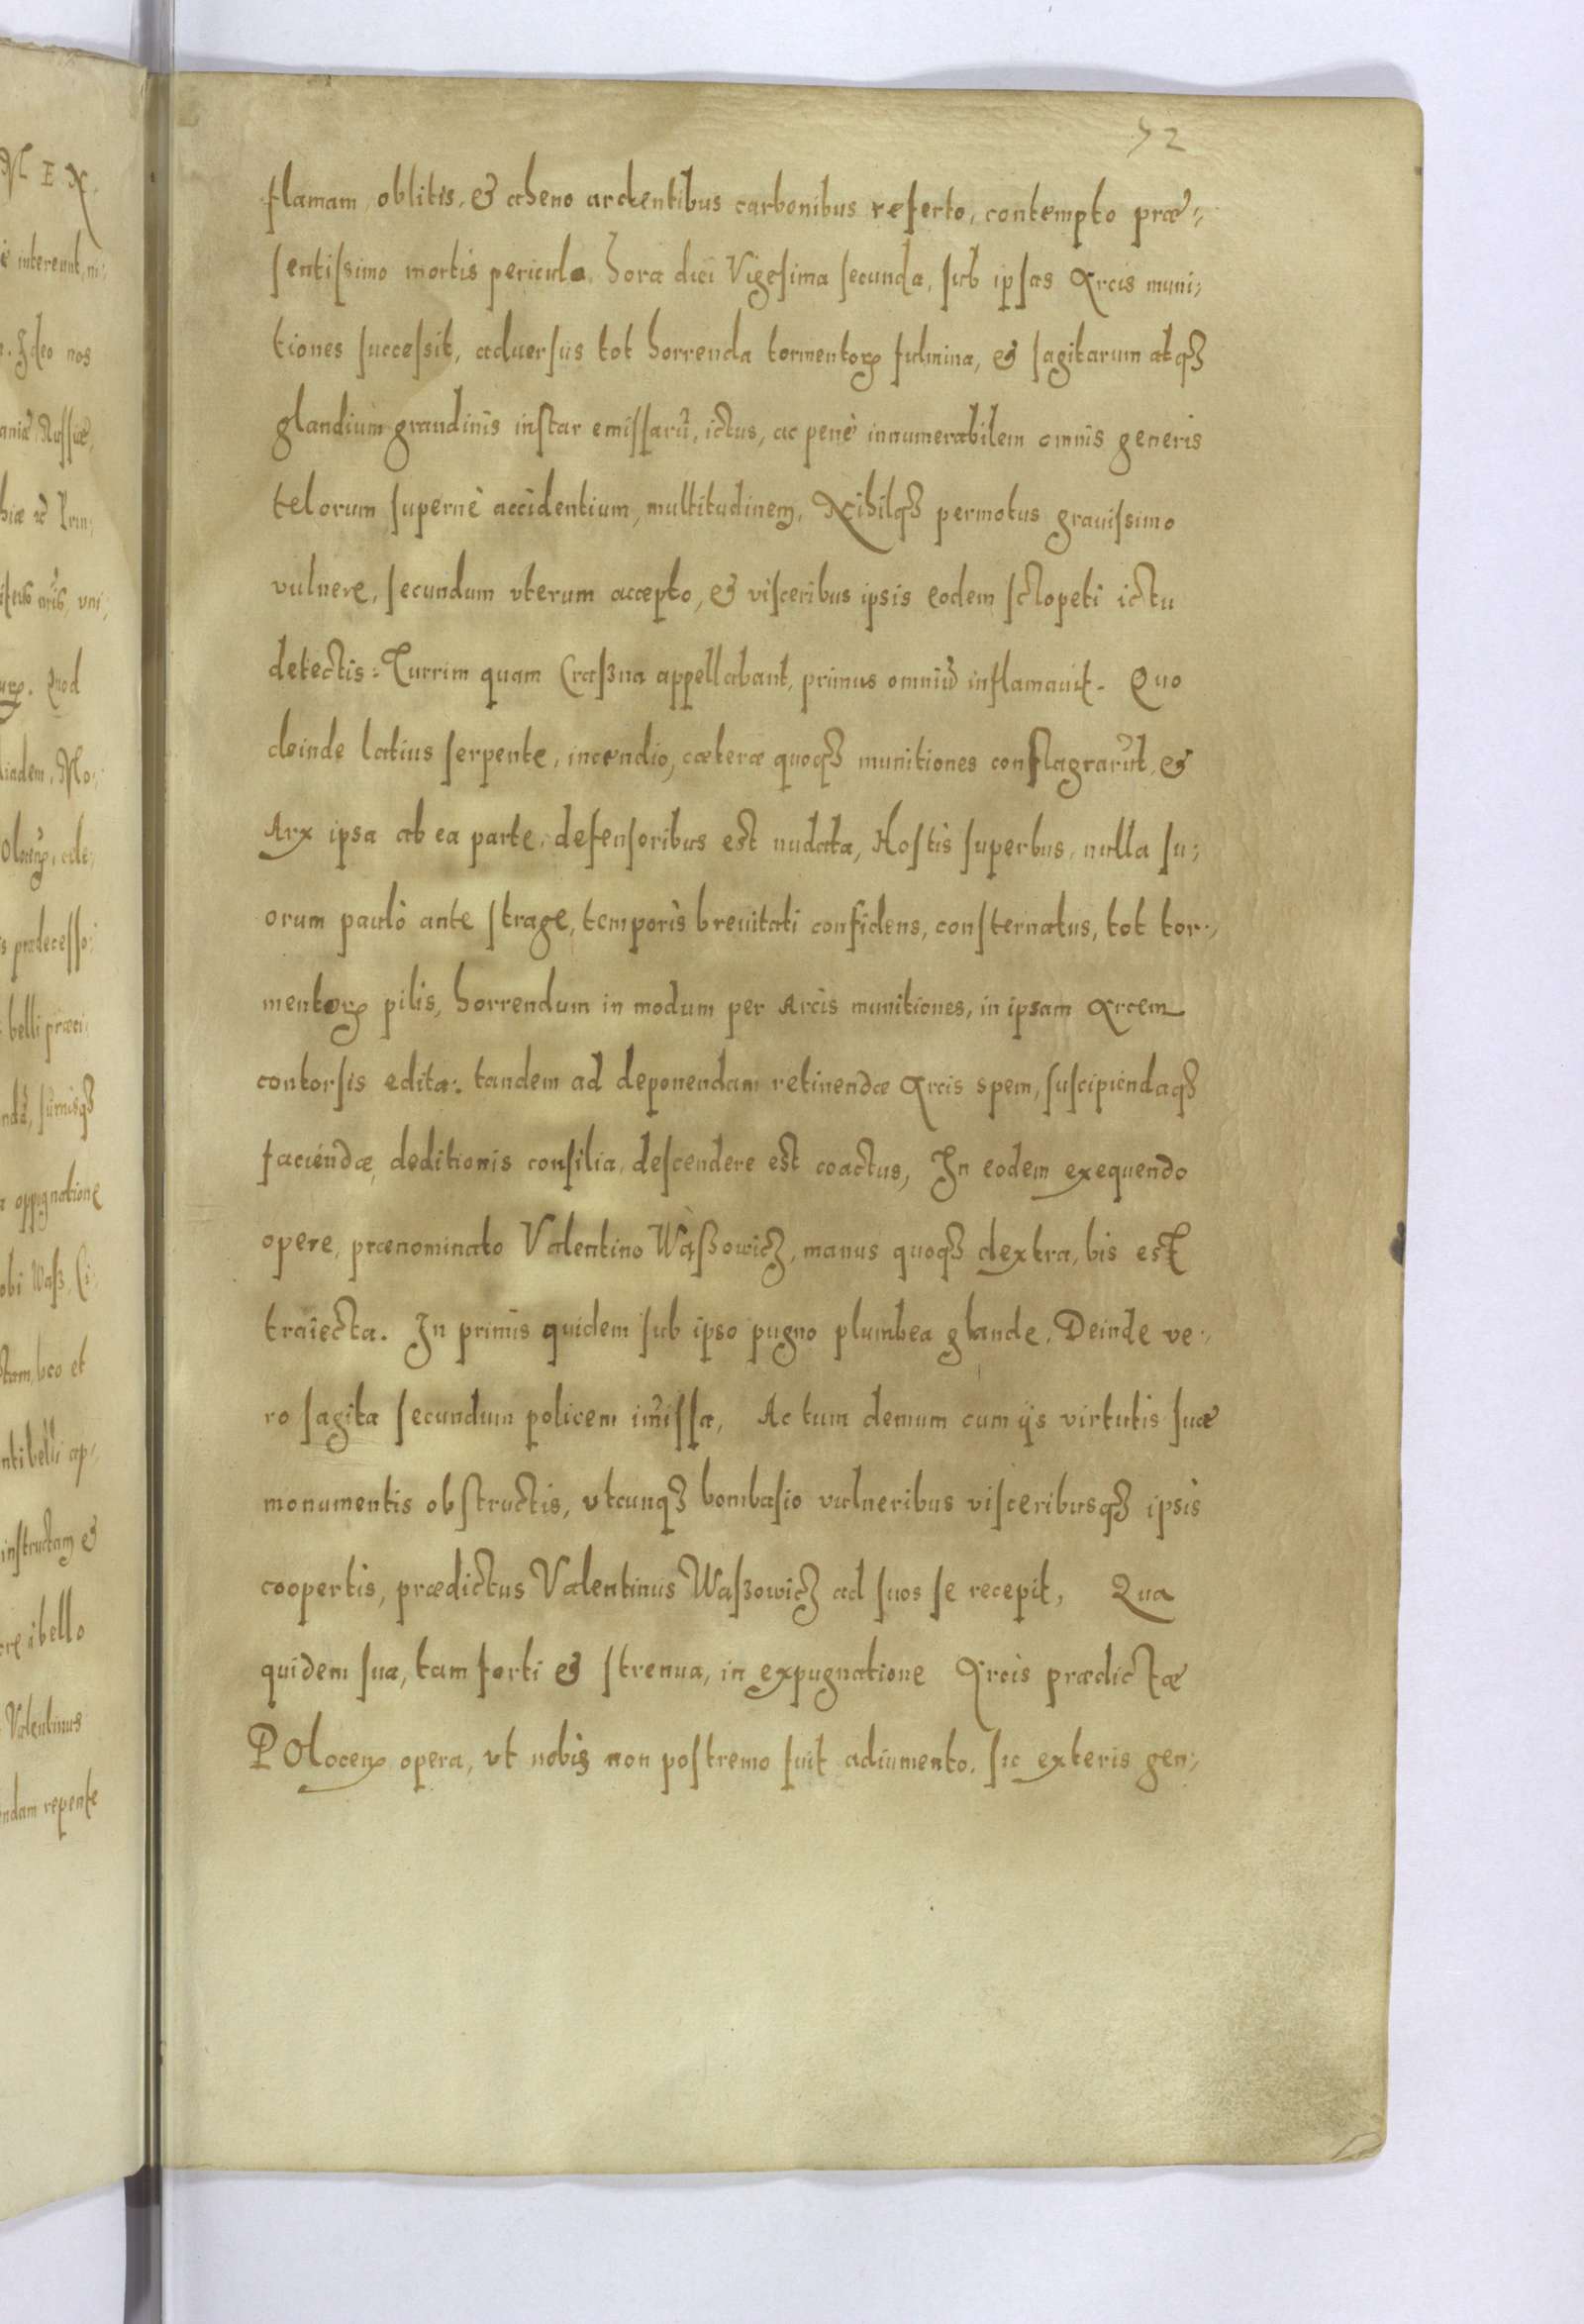 72
flamam, oblitis, & aheno ardentibus carbonibus referto, contempto præ-
sentissimo mortis periculo. hora diei Vigesima secunda, sub ipsas Arcis muni-
tiones successit, aduersus tot horrenda tormentoꝝ fulmina, & sagitarum atqꝫ
glandium grandinis instar emissarũ, ictus, ac penè innumerabilem omnis generis
telorum supernè accidentium, multitudinem, Nihilqꝫ permotus grauissimo
vulnere, secundum vterum accepto, & visceribus ipsis eodem sclopeti ictu
detectis: Turrim quam Craszna appellabant, primus omniũ inflamauit. Quo
deinde latius serpente, incendio, cæteræ quoqꝫ munitiones conflagrarũt, &
Arx ipsa ab ea parte, defensoribus est nudata, Hostis superbus, nulla su-
orum paulò ante strage, temporis breuitati confidens, consternatus, tot tor-
mentoꝝ pilis, horrendum in modum per Arcis munitiones, in ipsam Arcem
contorsis edita: tandem ad deponendam retinendæ Arcis spem, suscipiendaqꝫ
faciendæ, deditionis consilia, descendere est coactus, In eodem exequendo
opere, prænominato Valentino Wąszowicz, manus quoqꝫ dextra, bis est
traiecta. In primis quidem sub ipso pugno plumbea glande, Deinde ve-
ro sagita secundum policem im̃issa, Ac tum demum cum ijs virtutis suæ
monumentis obstructis, vtcunqꝫ bombasio vulneribus visceribusqꝫ ipsis
coopertis, prædictus Valentinus Waszowicz ad suos se recepit, Qua
quidem sua, tam forti & strenua, in expugnatione Arcis prædictæ
POlocen̄ opera, vt nobis non postremo fuit adiumento, sic exteris gen-